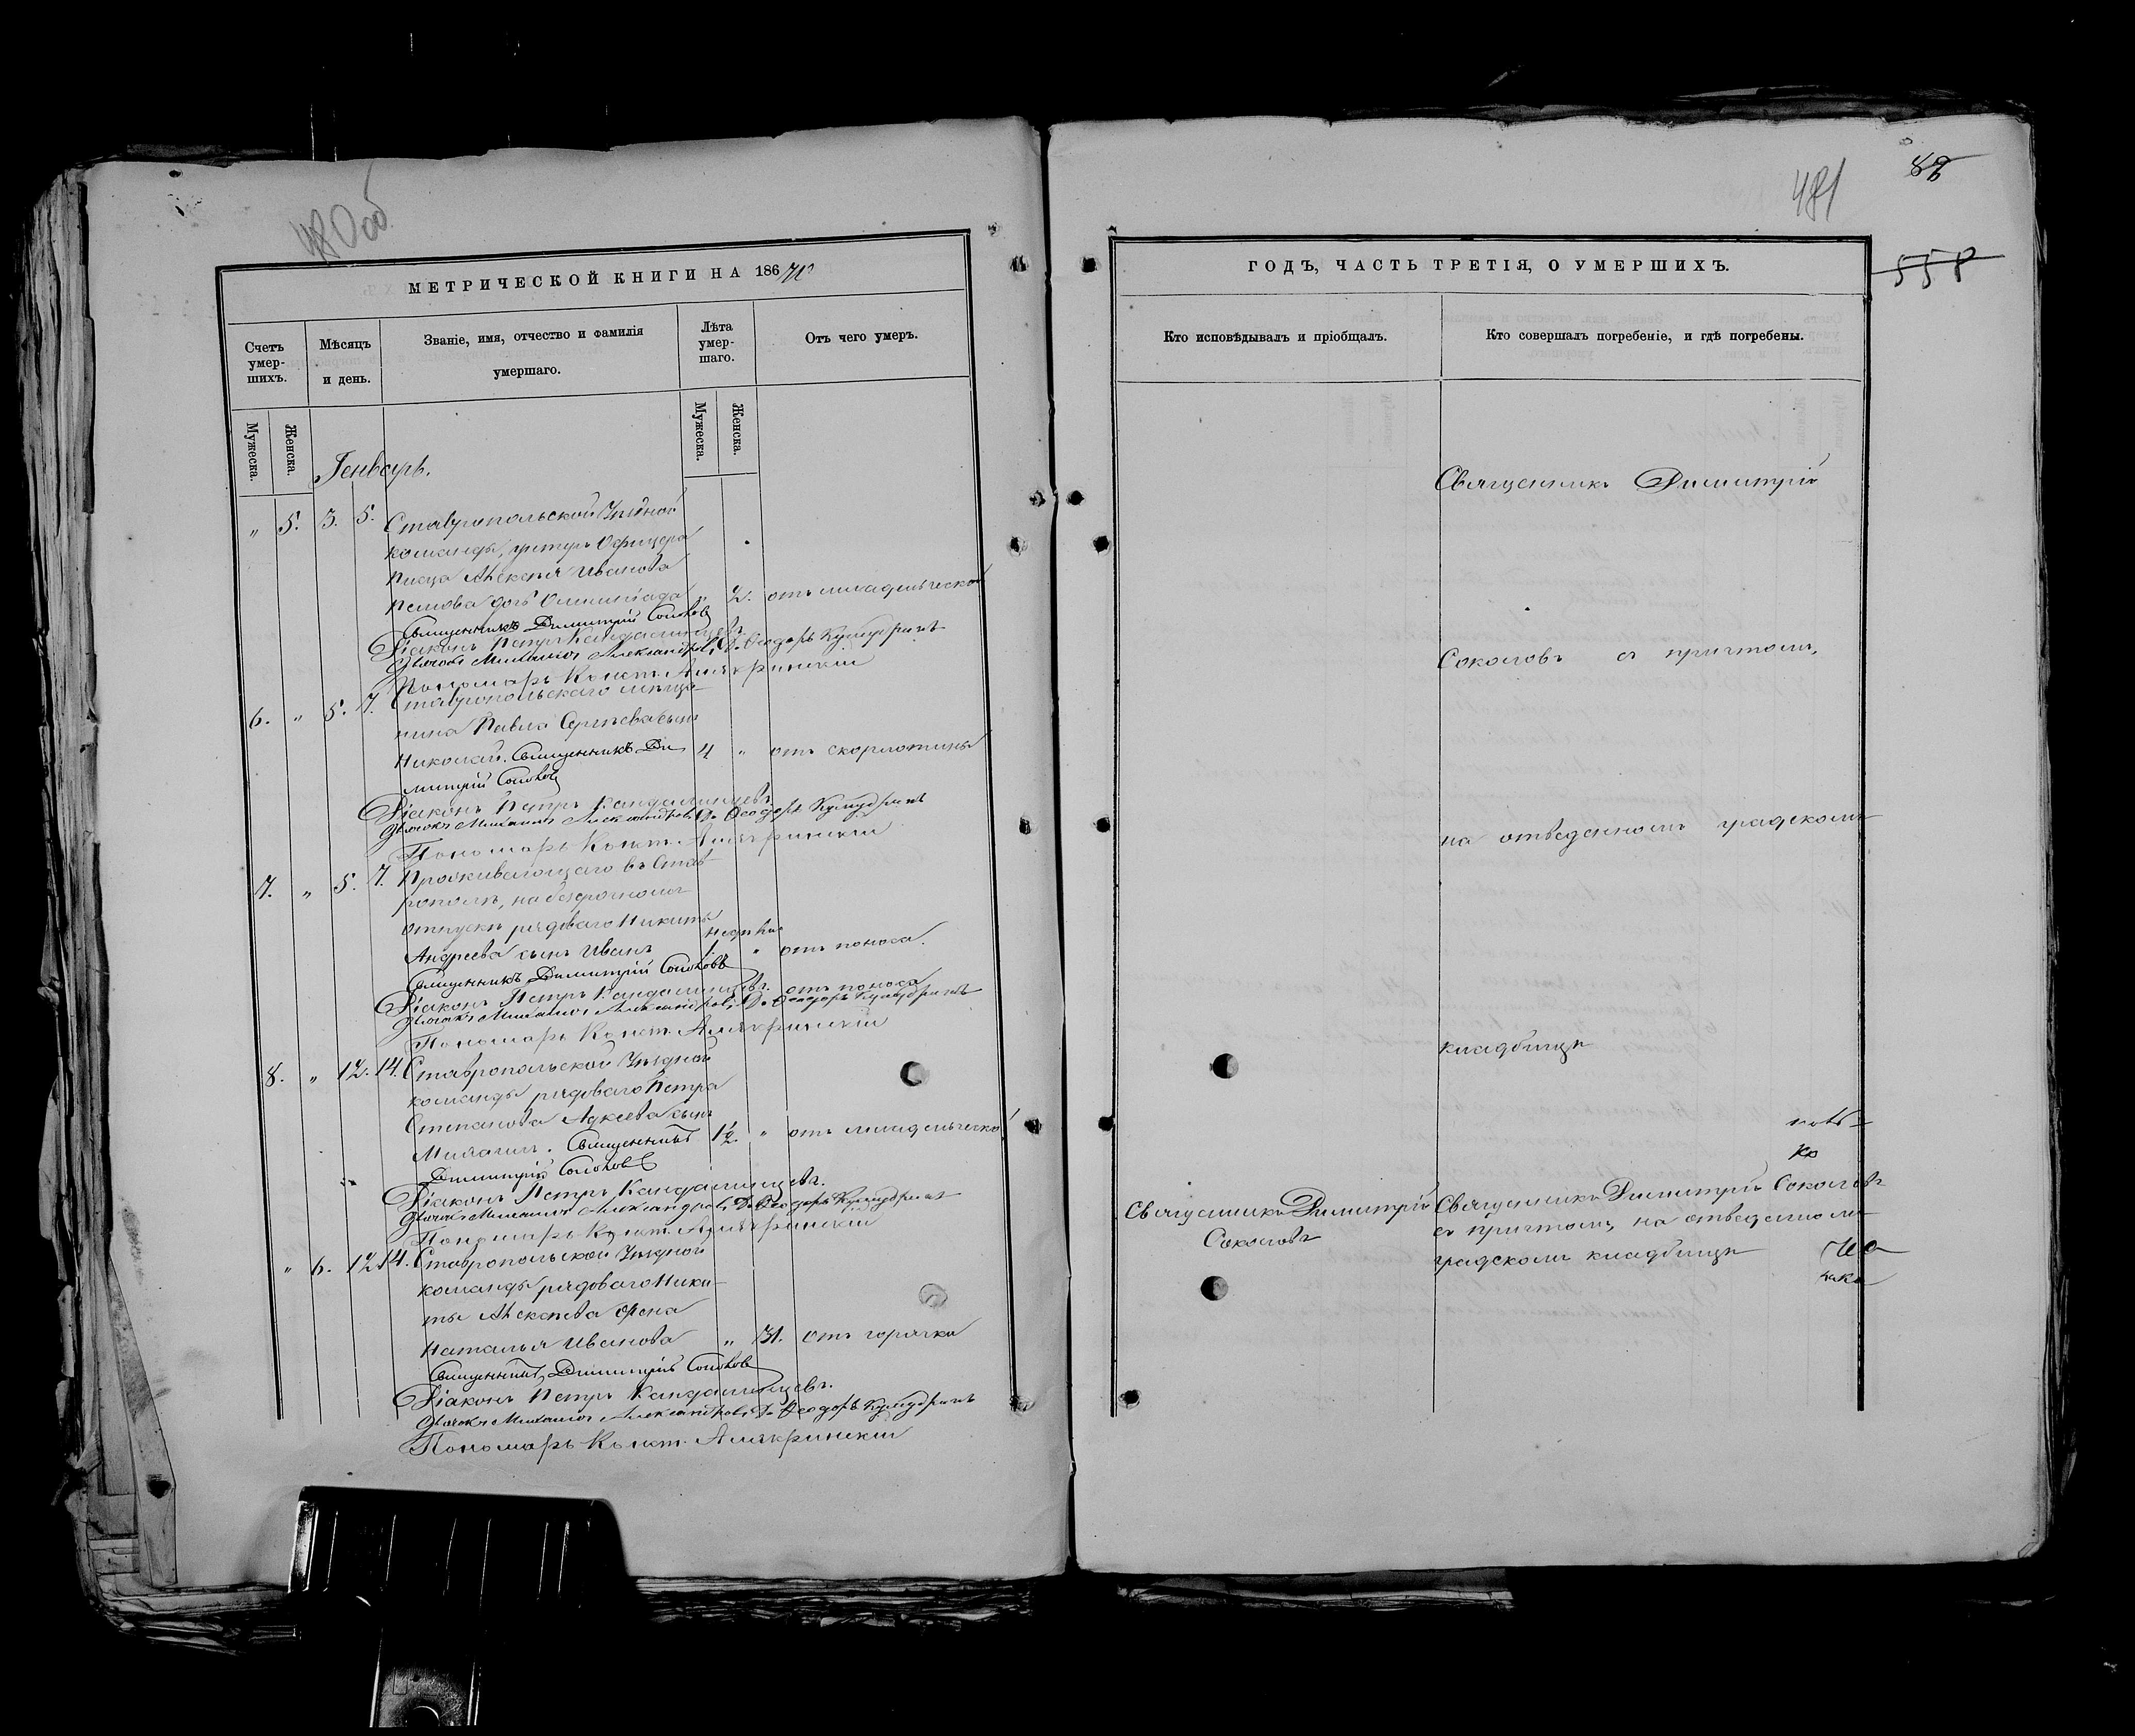 480об
МЕТРИЧЕСКОЙ КНИГИ НА 186
Счетъ умер-шихъ.
Мѣсяцъ и день.
Званіе, имя, отчество и фамилія умершаго.
Лѣта умер-шаго.
Отъ чего умеръ.
Мужеска.
Женска.
Мужеска.
Женска.
Генварь.
" 5. 3. 5. Ставропольской Уѣздной
команды, унтеръ Офицера
писца Алексѣя Иванова
дочь Олимпіада " 2. отъ младенческой
Священникъ Димитрій Соколовъ
Діаконъ Петръ Кандалинцевъ.
Дьячокъ Михаилъ Александровъ, Д. Ѳеодоръ
Пономарь Конст. Алякринскій
6. " 5. 7. Ставропольскаго мѣща-
нина Павла Сергѣева сынъ
Николай. Священникъ Ди 4 " отъ скорлотины
митрій Соколовъ
Діаконъ Петръ Кандалинцевъ
Дьячокъ Михаилъ Александровъ Д. Ѳеодоръ
Пономарь Конст. Алякринскій
7. " 5. 7. Проживающаго въ Став-
рополѣ, на безсрочномъ
отпускѣ рядоваго Никиты
Андреева сынъ Иванъ 1 " отъ поноса.
Священникъ Димитрій Соколовъ
Діаконъ Петръ Кандалинцевъ. отъ поноса
Дьячокъ Михаилъ Александровъ, Д. Ѳеодоръ
Пономарь Конст. Алякринскій
8. " 12. 14. Ставропольской Уѣздной
команды рядоваго Петра
Степанова сынъ
Михаилъ. Священникъ " отъ младенческой
Димитрій Соколовъ
Діаконъ Петръ Кандалинцевъ.
Дьячокъ Михаилъ Александровъ, Д. Ѳеодоръ
Пономарь Конст. Алякринскій
" 6. 12 14. Ставропольской Уѣздной
команды рядоваго Ники-
ты Алексѣева жена
Наталья Иванова " 31. отъ горячки
Священникъ Димитрій Соколовъ
Діаконъ Петръ Кандалинцевъ.
Дьячокъ Михаилъ Александровъ, Д. Ѳеодоръ
Пономарь Конст. Алякринскій
481
558
ГОДЪ, ЧАСТЬ ТРЕТІЯ, О УМЕРШИХЪ.
Кто исповѣдывалъ и пріобщалъ.
Кто совершалъ погребеніе, и гдѣ погребены.
Священникъ Димитрій
Соколовъ съ причтомъ,
на отведенномъ градскомъ
кладбищѣ
Священникъ Димитрій
Соколовъ
Священникъ Димитрій Соколовъ
съ причтомъ, на отведенномъ
градскомъ кладбищѣ